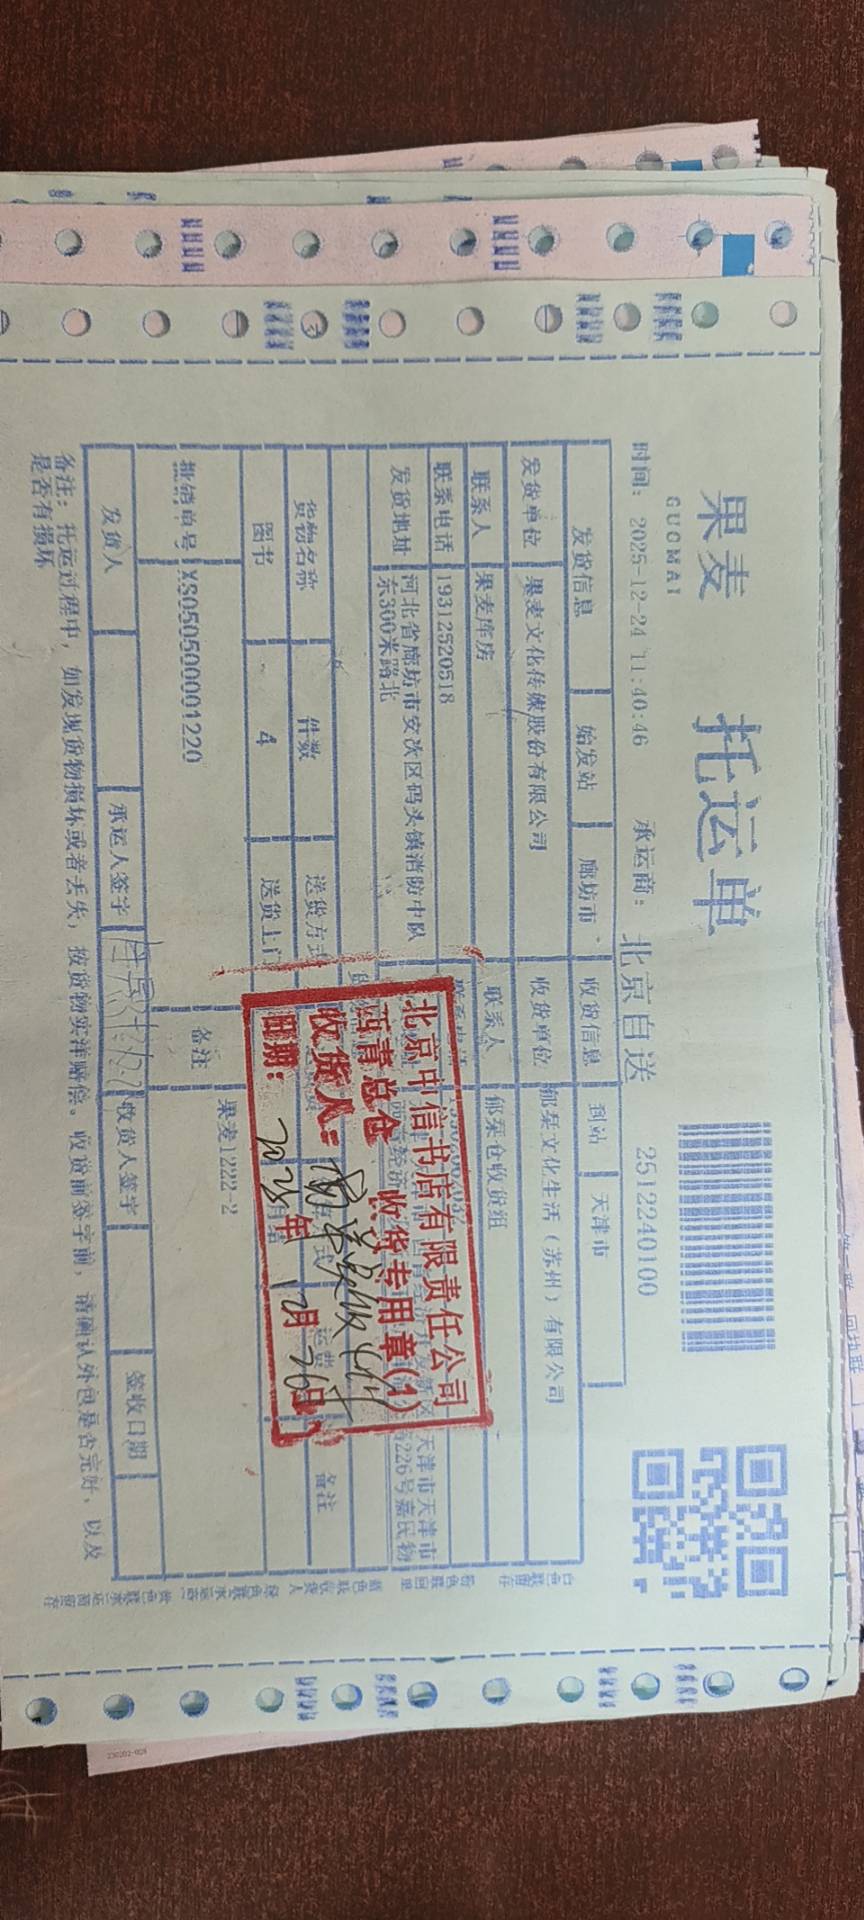 果麦 托运单
GUOMAI
2512240100
时间: 2025-12-24 11:40:46 承运商: 北京自送
发货信息 始发站 廊坊市 收货信息 到站 天津市
发货单位 果麦文化传媒股份有限公司 收货单位 郁栞文化生活(苏州)有限公司
联系人 果麦库房 联系人 郁栞仓收货组
联系电话 19312520518 联系电话
发货地址 河北省廊坊市安次区码头镇消防中队
东300米路北
天津市天津市
226号嘉民物
货物名称 件数 送货方式 备注
图书 4 送货上门
批销单号 XS050500001220 备注 果麦1222-2
发货人 承运人签字 收货人签字 签收日期
备注: 托运过程中, 如发现货物损坏或者丢失, 按货物实洋赔偿。收货前签字前, 请确认外包是否完好, 以及
是否有损坏
北京中信书店有限责任公司
西青总仓 收货专用章(1)
收货人:
日期: 2025年12月26日
230202-028